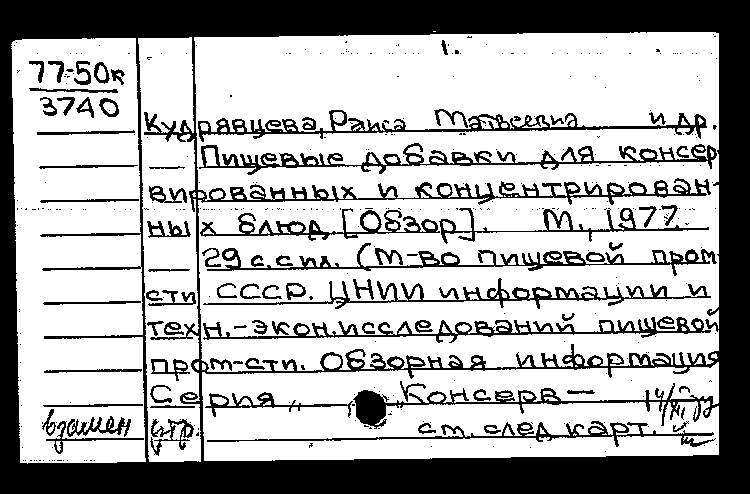 1.
77-50к
3740
Кудрявцева, Раиса Матвеевна и др.
Пищевые добавки для консер-
вированных и концентрирован-
ных блюд. [Обзор]. М., 1977.
29 с. с ил. (М-во пищевой пром-
сти СССР. ЦНИИ информации и
техн.-экон. исследований пищевой
пром-сти. Обзорная информация
Серия „ „Консерв—
взамен утр. см. след карт.